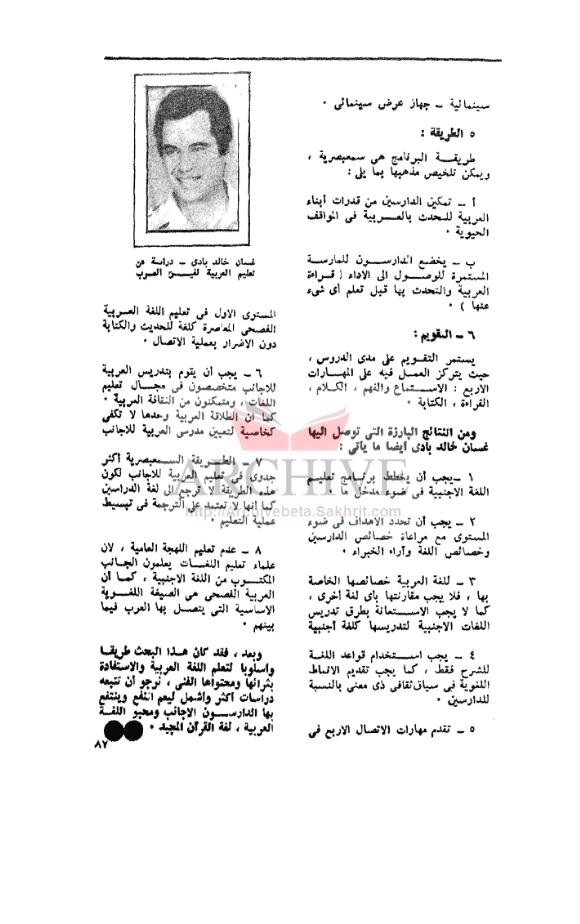 سينمائية – جهاز عرض سينمائى ·
٥ الطريقة :
طريقــة البرنامج هى سمعبصرية ،
ويمكن تلخيص مذهبها بما يلى :
أ – تمكين الدارسين من قدرات أبناء
العربية للتحدث بالعــربية فى المواقف
الحيوية ·
ب – يخضع الدارســـون للمارسة
المستمرة للوصـــول الى الاداء ( قـراءة
العربية والتحدث بها قبل تعلم أى شىء
عنها ) ·
٦ – التقويم :
يستمر التقويم على مدى الدروس ،
حيث يتركز العمـل فيه على المهـارات
الاربع : الاســتماع والفهم ، الكـلام ،
القراءة ، الكتابة ·
ومن النتائج البارزة التى توصل اليها
غسان خالد بادى أيضا ما يأتى :
١ – يجب أن يخطط برنامج تعليـم
اللغة الاجنبية فى ضوء مدخل ما ·
٢ – يجب أن تحدد الاهداف فى ضوء
المستوى مع مراعاة خصائص الدارسين
وخصائص اللغة وآراء الخبراء ·
٣ – للغة العربية خصائصها الخاصة
بها ، فلا يجب مقارنتها بأى لغة أخرى ،
كما لا يجب الاســتعانة بطرق تدريس
اللغات الاجنبية لتدريسها كلغة أجنبية
٤ – يجب اســـتخدام قواعد اللغـة
للشرح فقط ، كما يجب تقديم الانماط
اللغوية فى سياق ثقافى ذى معنى بالنسبة
للدارسين ·
٥ – تقدم مهارات الاتصال الاربع فى
غسان خالد بادى – دراسة عن
تعليم العربية لغيـــر العرب
المستوى الاول فى تعليم اللغة العـربية
الفصحى المعاصرة كلغة للحديث والكتابة
دون الاضرار بعملية الاتصال ·
٦ – يجب أن يقوم بتدريس العربية
للاجانب متخصصون فى مجـال تعليم
اللغات ، ومتمكنون من الثقافة العربية ·
كما أن الطلاقة العربية وحدها لا تكفى
كخاصية لتعيين مدرسى العربية للاجانب
٧ – الطـريقة الســمعبصرية أكثر
جدوى فى تعليم العربية للاجانب لكون
هذه الطريقة لا ترجع الى لغة الدارسين
كما أنها لا تعتمد على الترجمة فى تبسيط
عملية التعليم ·
٨ – عدم تعليم اللهجة العامية ، لان
علماء تعليم اللغـات يعلمون الجـانب
المكتــوب من اللغة الاجنبية ، كمـا أن
العربية الفصحى هى الصيغة اللغــوية
الاساسية التى يتصل بها العرب فيما
بينهم ·
وبعد ، فقد كان هــذا البحث طريقـا
وأسلوبا لتعلم اللغة العربية والاستفادة
بثرائها ومحتواها الفنى ، نرجو أن تتبعه
دراسات أكثر وأشمل ليعم النفع وينتفع
بها الدارســون الاجانب ومحبو اللغـة
العربية ، لغة القرآن المجيد ·
٨٧
ARCHIVE
http://Archivebeta.Sakhrit.com